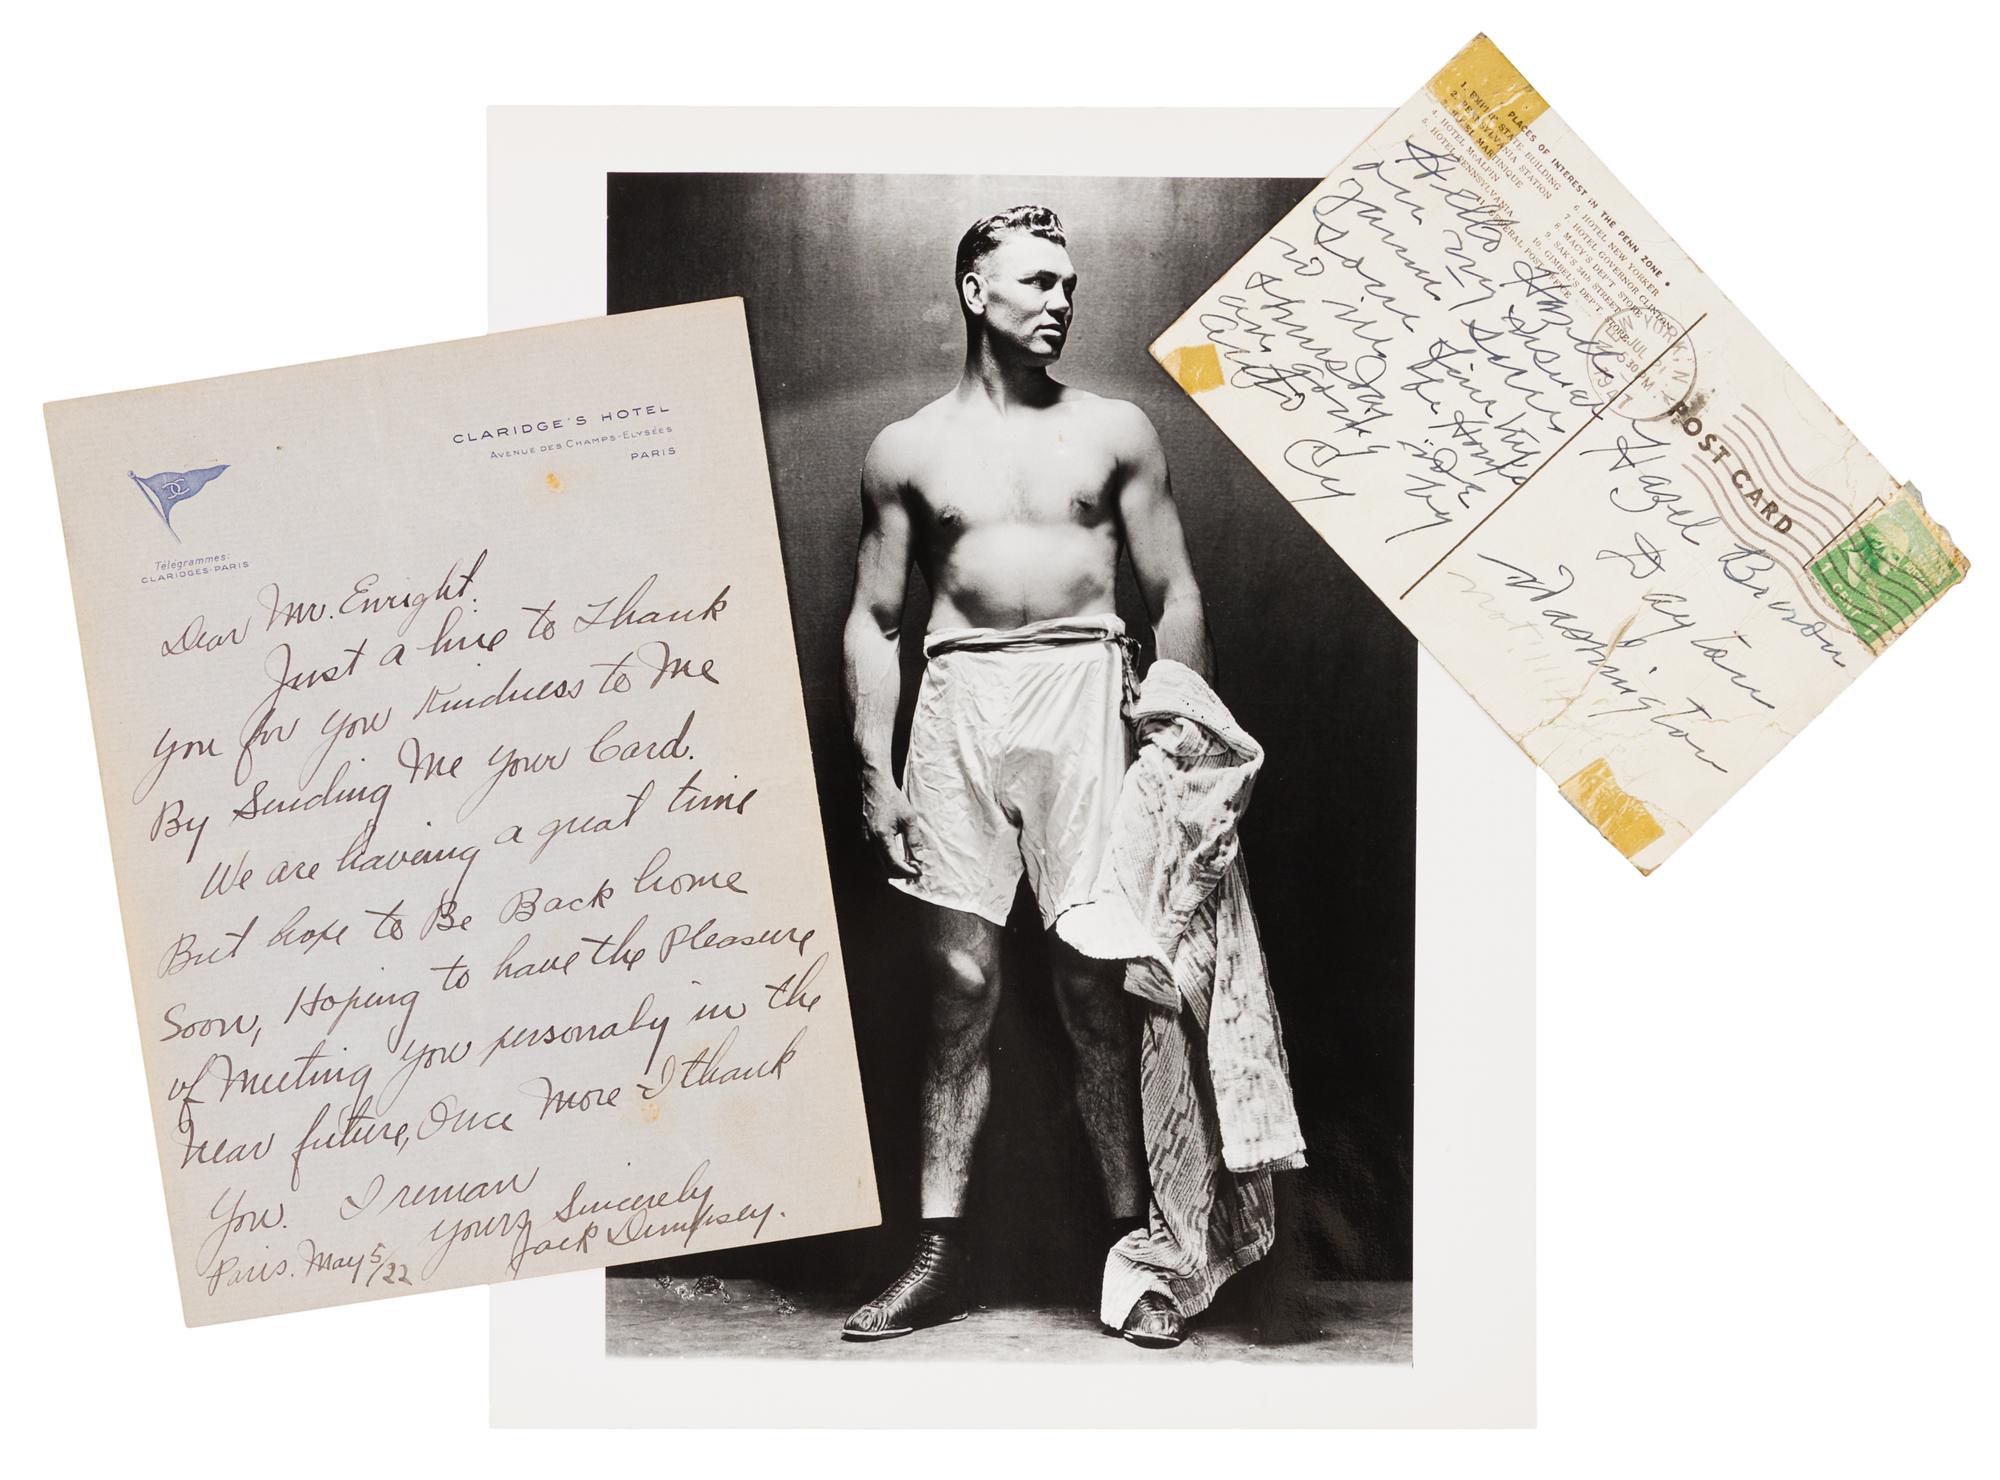 CLARIDGE'S HOTEL
AVENUE DES CHAMPS-ELYSÉES
PARIS
Télégrammes:
CLARIDGES-PARIS
Dear Mr. Enright.
Just a line to Thank
you for you Kindness to Me
By Sending Me your Card.
We are haveing a great time
But hope to Be Back home
Soon, Hoping to have the Pleasure
of Meeting you personaly in the
near future, Once More I thank
you. I reman
yours Sincerely
Jack Dempsey.
Paris. May 5/22
PLACES OF INTEREST IN THE PENN ZONE
1. EMPIRE STATE BUILDING
2. PENNSYLVANIA STATION
3. HOTEL MARTINIQUE
4. HOTEL McALPIN
5. HOTEL PENNSYLVANIA
6. HOTEL NEW YORKER
7. HOTEL GOVERNOR CLINTON
8. MACY'S DEP'T STORE
9. SAK'S 34th STREET
10. GIMBEL'S DEP'T. STORE
11. GENERAL POST OFFICE
Hello Hazel
on my
Jack
will be Home
Thursday
am going by
auto
Cy
YORK, N.
JUL
5 30 PM
POST CARD
1 CENT
Hazel Bowon
Dayton
Washington